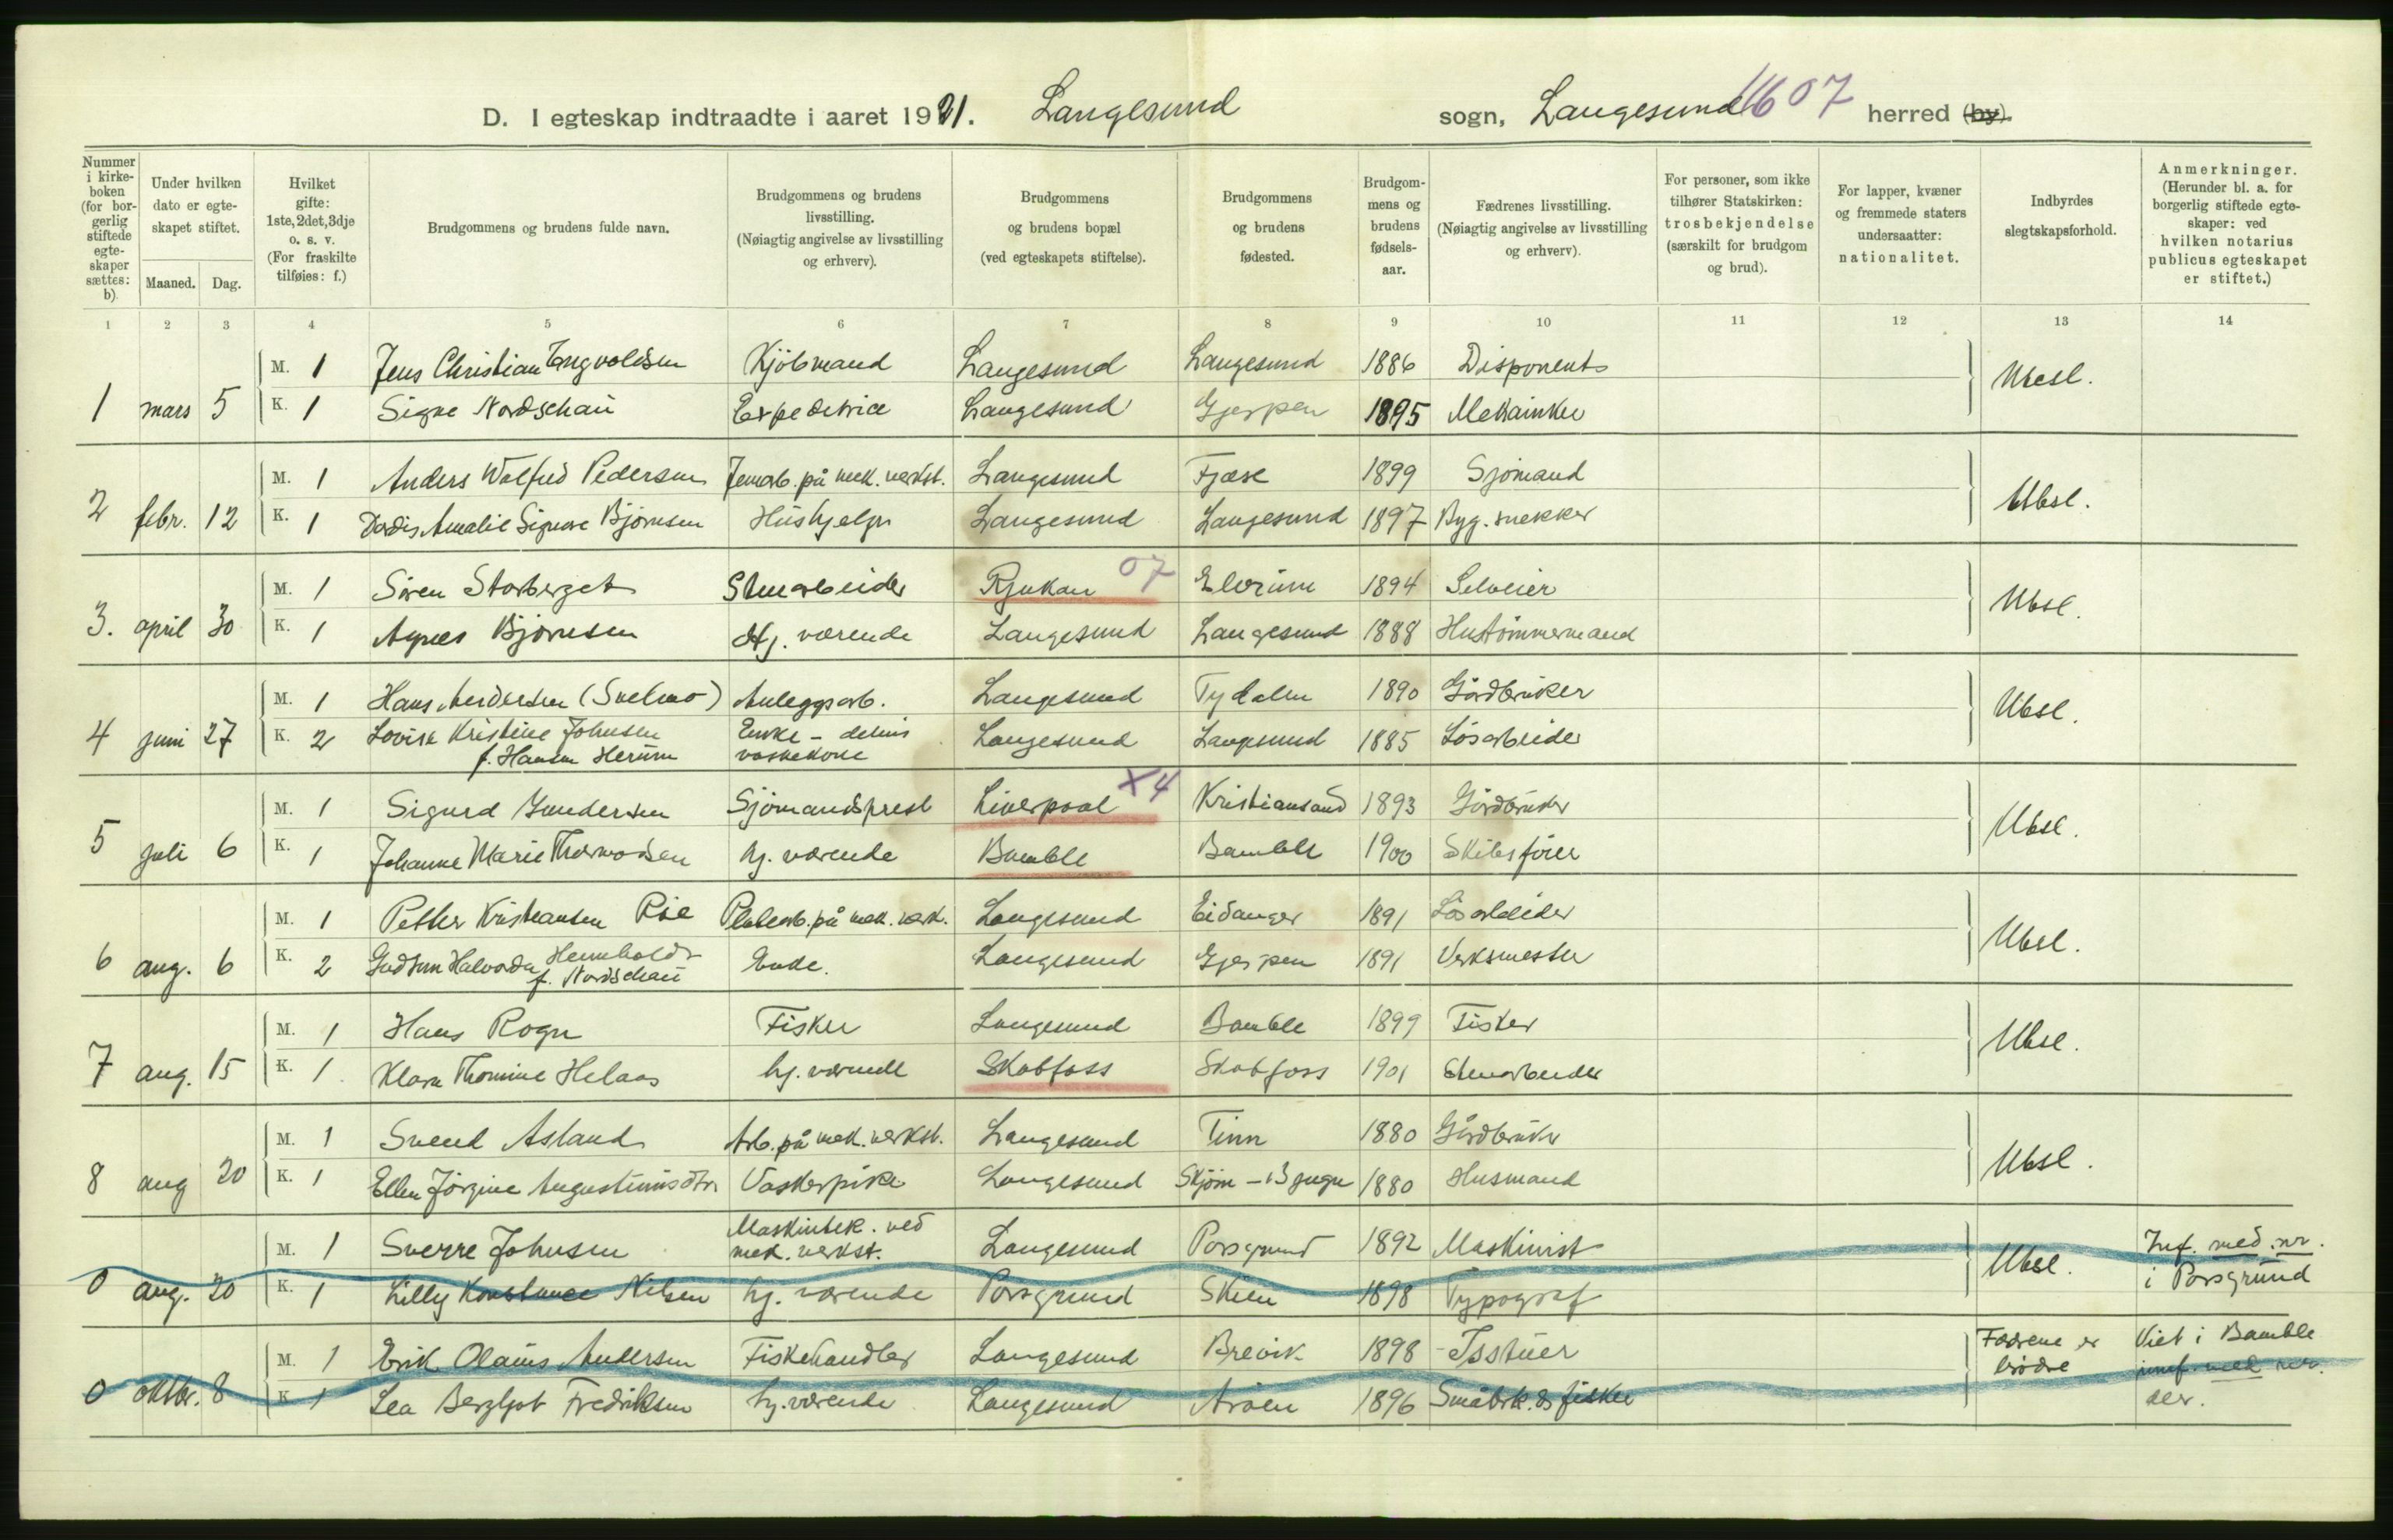 D. I egteskap indtraadte i aaret 1921. Langesund sogn, Langesund 1607 herred (by).
Nummer i kirke-boken (for bor-gerlig stiftede egte-skaper sættes: b).
Under hvilken dato er egte-skapet stiftet.
Maaned. Dag.
Hvilket gifte: 1ste, 2det, 3dje o. s. v. (For fraskilte tilføies: f.)
Brudgommens og brudens fulde navn.
Brudgommens og brudens livsstilling. (Nøiagtig angivelse av livsstilling og erhverv).
Brudgommens og brudens bopæl (ved egteskapets stiftelse).
Brudgommens og brudens fødested.
Brudgom-mens og brudens fødsels-aar.
Fædrenes livsstilling. (Nøiagtig angivelse av livsstilling og erhverv).
For personer, som ikke tilhører Statskirken: trosbekjendelse (særskilt for brudgom og brud).
For lapper, kvæner og fremmede staters undersaatter: nationalitet.
Indbyrdes slegtskapsforhold.
Anmerkninger. (Herunder bl. a. for borgerlig stiftede egte-skaper: ved hvilken notarius publicus egteskapet er stiftet.)
1 2 3 4 5 6 7 8 9 10 11 12 13 14
M. 1 Jens Christian Engvoldsen Kjöbmand Langesund Langesund 1886 Disponent
1 mars 5 K. 1 Signe Nordschau Expeditrice Langesund Gjerpen 1895 Mekaniker Ubesl.
M. 1 Anders Walfred Pedersen Jernarb. på mek. verkst. Langesund Fjære 1899 Sjömand
2 febr. 12 K. 1 Dordis Amalie Signore Björnsen Hushjelp Langesund Langesund 1897 Byg. snekker Ubsl.
M. 1 Sören Storberget Stenarbeider Rjukan 07 Elverum 1894 Selveier
3. april 30 K. 1 Agnes Björnsen Hj. værende Langesund Langesund 1888 Hustömmermand Ubsl.
M. 1 Hans Andersen (Svelmo) Anleggsarb. Langesund Tydalen 1890 Gårdbruker
4 juni 27 K. 2 Lovise Kristine Johnsen Enke - Langesund Langesund 1885 Lösarbeider Ubsl.
f. Hansen Herum vaskekone
M. 1 Sigurd Gundersen Sjömandsprest Liverpool X4 Kristiansand 1893 Gårdbruker
5 juli 6 K. 1 Johanne Marie Thorvodsen hj. værende Bamble Bamble 1900 Skibsförer Ubsl.
M. 1 Petter Kristiansen Rie Platearb. på mek. verk. Langesund Eidanger 1891 Lösarbeider
6 aug. 6 K. 2 Gudrun Halvorda Hemholdt Enke. Langesund Gjerpen 1891 Verksmester Ubsl.
f. Nordschau
M. 1 Hans Rogn Fisker Langesund Bamble 1899 Fisker
7 aug. 15 K. 1 Klara Thomine Helaas hj. værende Skotfoss Skotfoss 1901 Stenarbeider Ubsl.
M. 1 Svend Asland Arb. på mek. verkst. Langesund Tinn 1880 Gårdbruker
8 aug 20 K. 1 Ellen Jörgine Augustinusdtr Vaskepike Langesund Skjörn - Bjugn 1880 Husmand Ubsl.
Maskintek. ved
M. 1 Sverre Johnsen mek. verkst. Langesund Porsgrund 1892 Maskinist Inf. med. nr.
0 aug. 20 K. 1 Lilly Konstance Nilsen hj. værende Porsgrund Skien 1898 Typograf Ubsl. i Porsgrund
M. 1 Erik Olaüs Andersen Fiskehandler Langesund Brevik 1898 Isstüer Fædrene er brödre Viet i Bamble
0 oktbr. 8 K 1 Lea Bergljot Fredriksen hj. værende Langesund Aröen 1896 Småbrk. & fisker innf. med nr. der.